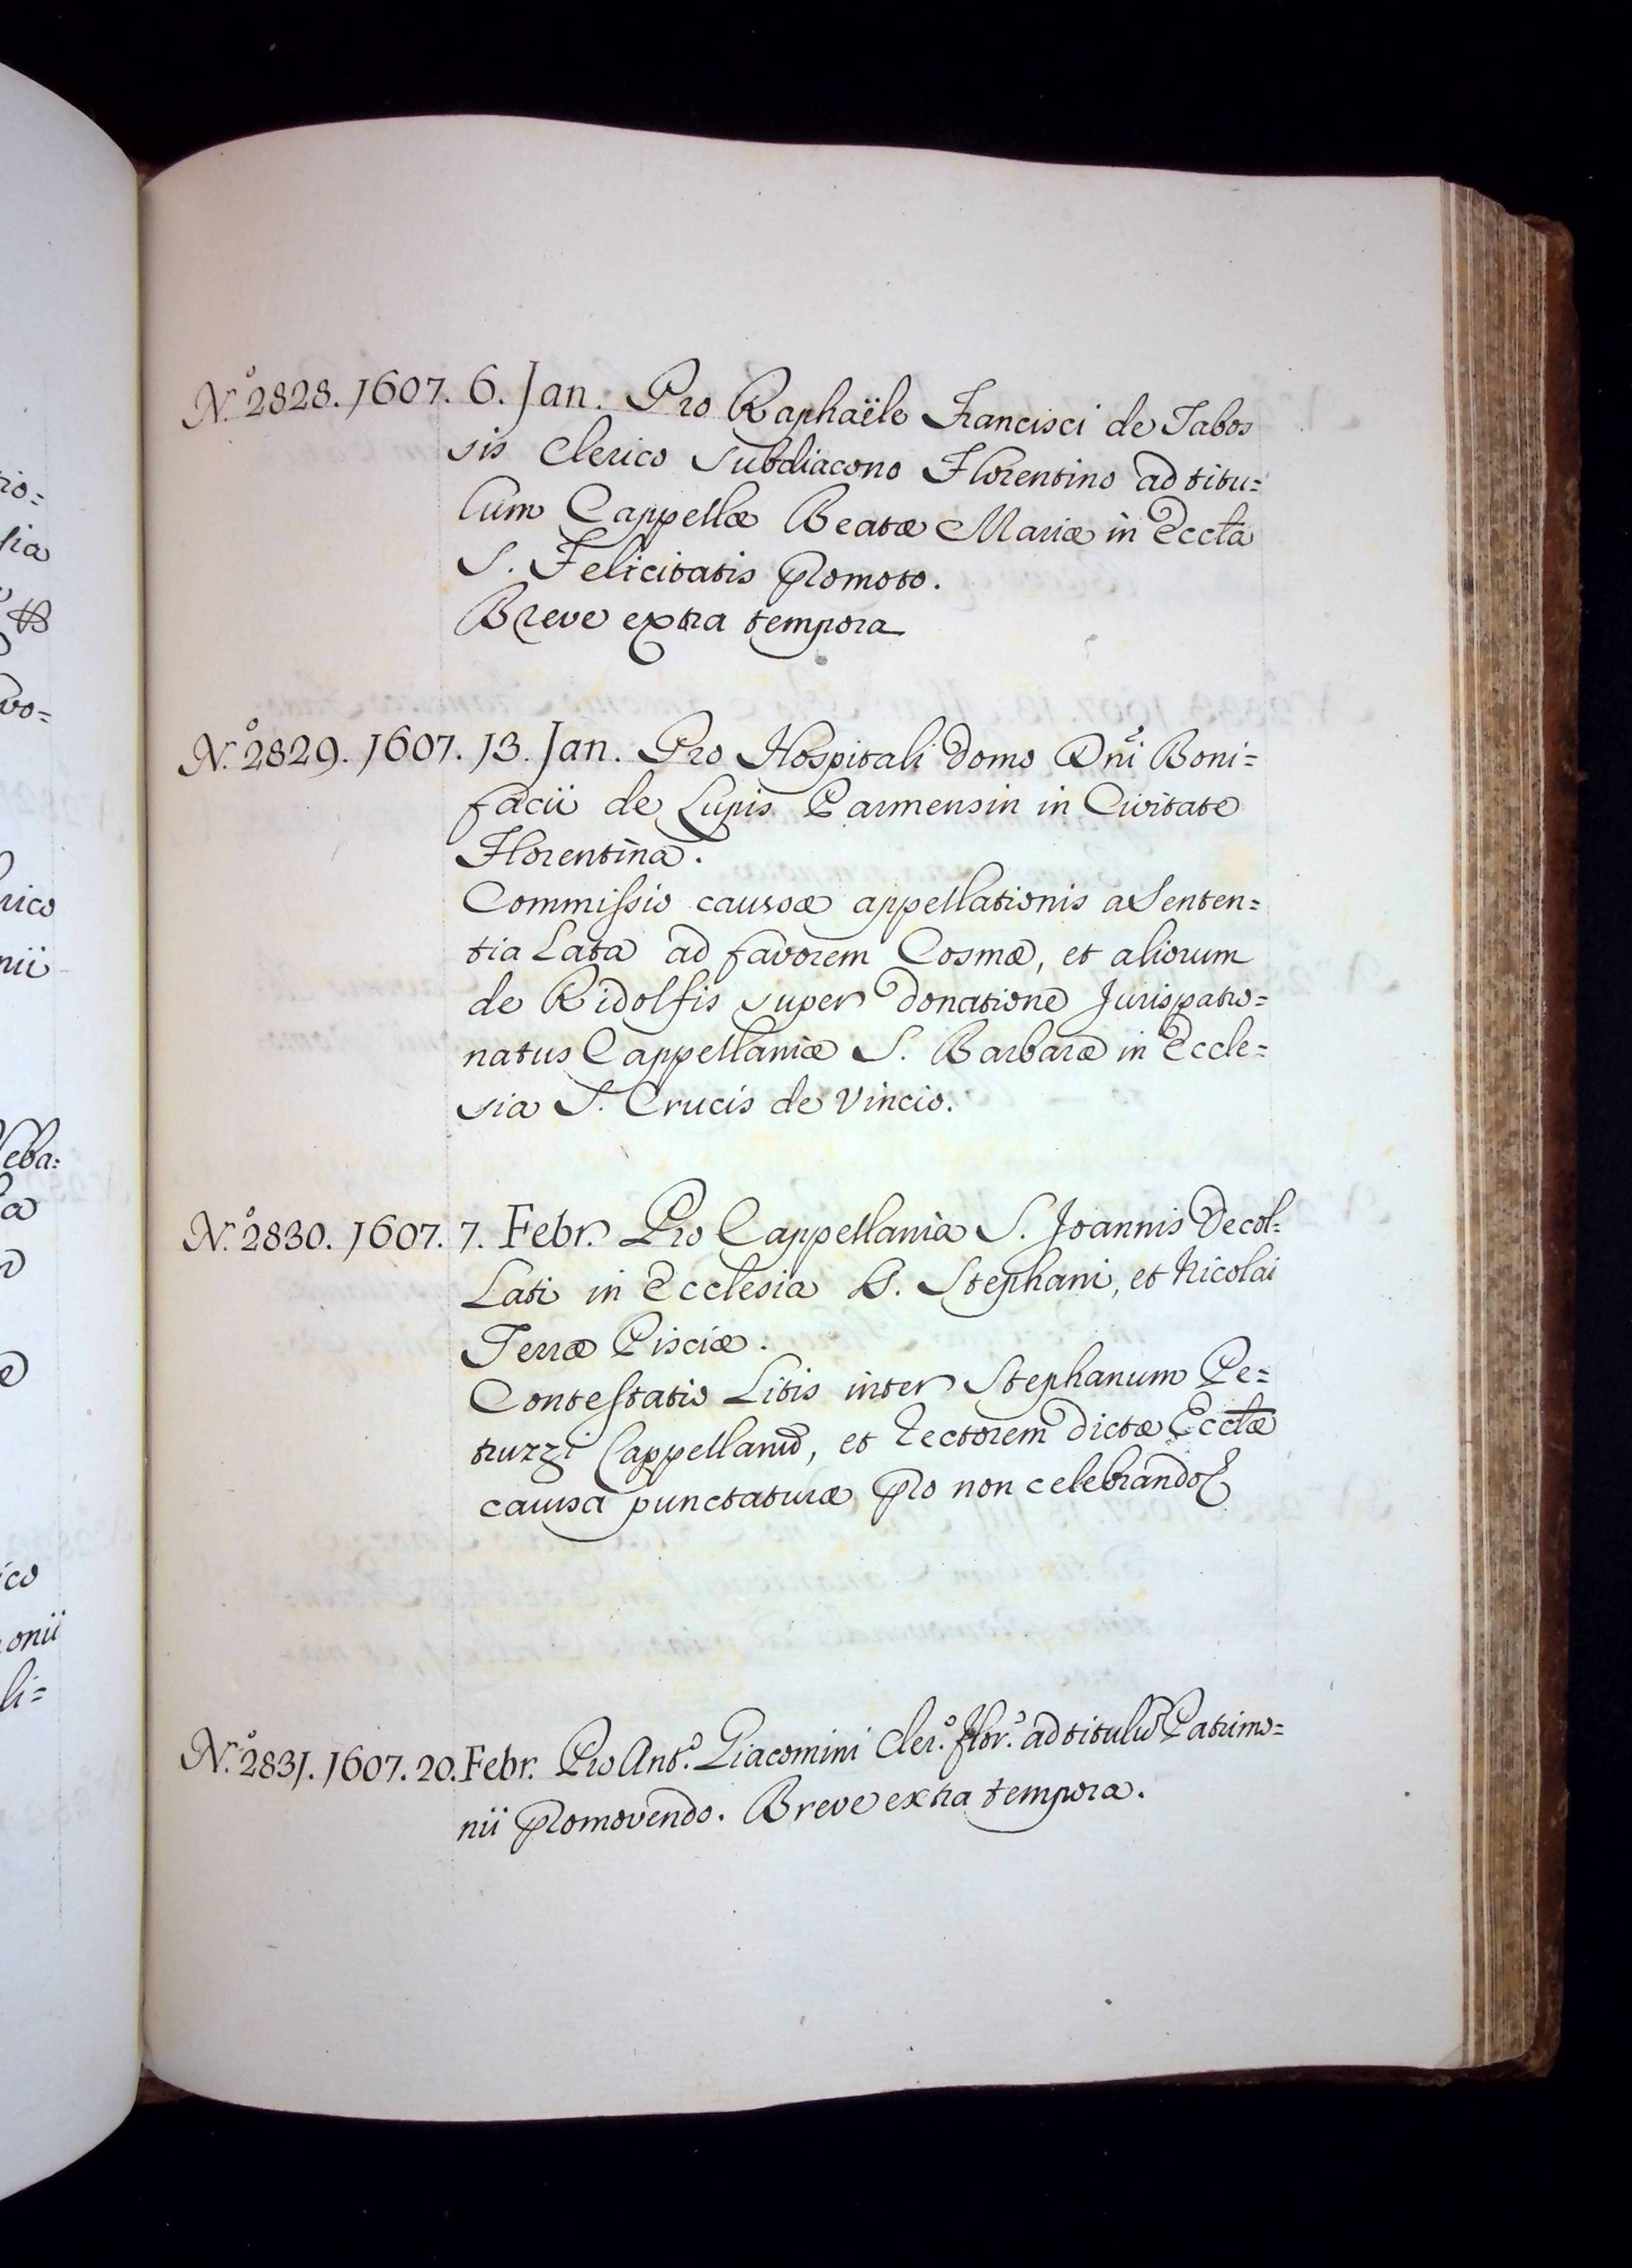 N.º 2828. 1607. 6. Jan. Pro Raphaële Francisci de Tabos
sis Clerico Subdiacono Florentino ad titu=
lum Cappellæ Beatæ Mariæ in Eccta
S. Felicitatis promoto.
Breve extra tempora
N.º 2829. 1607. 13. Jan. Pro Hospitali domo Dni Boni=
facii de Lupis Parmensin in Civitate
Florentina.
Commissio causæ appellationis a Senten=
tia Lata ad favorem Cosmæ, et aliorum
de Ridolfis super donatione Jurispatro=
natus Cappellaniæ S. Barbaræ in Eccle=
sia S. Crucis de Vincio.
N.º 2830. 1607. 7. Febr. Pro Cappellania S. Joannis Decol=
Lati in Ecclesia S. Stephani, et Nicolai
Terræ Pisciæ.
Contestatio Litis inter Stephanum Pe=
truzzi Cappellanū, et Rectorem dictæ Ecctæ
causa punctaturæ pro non celebrando
N.º 2831. 1607. 20. Febr. Pro Ant.º Giacomini Cler.º flor.º ad titulū Patrimo=
nii promovendo. Breve extra tempora.
rio=
sia
vo=
rico
nii
Neba=
a
ico
onii
li=